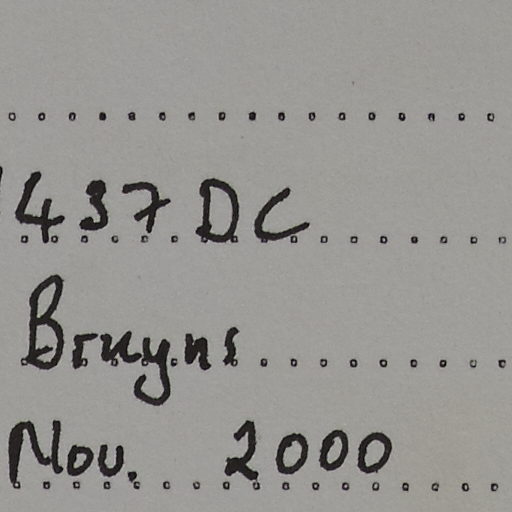 437DC
Bruyns
Nov. 2000